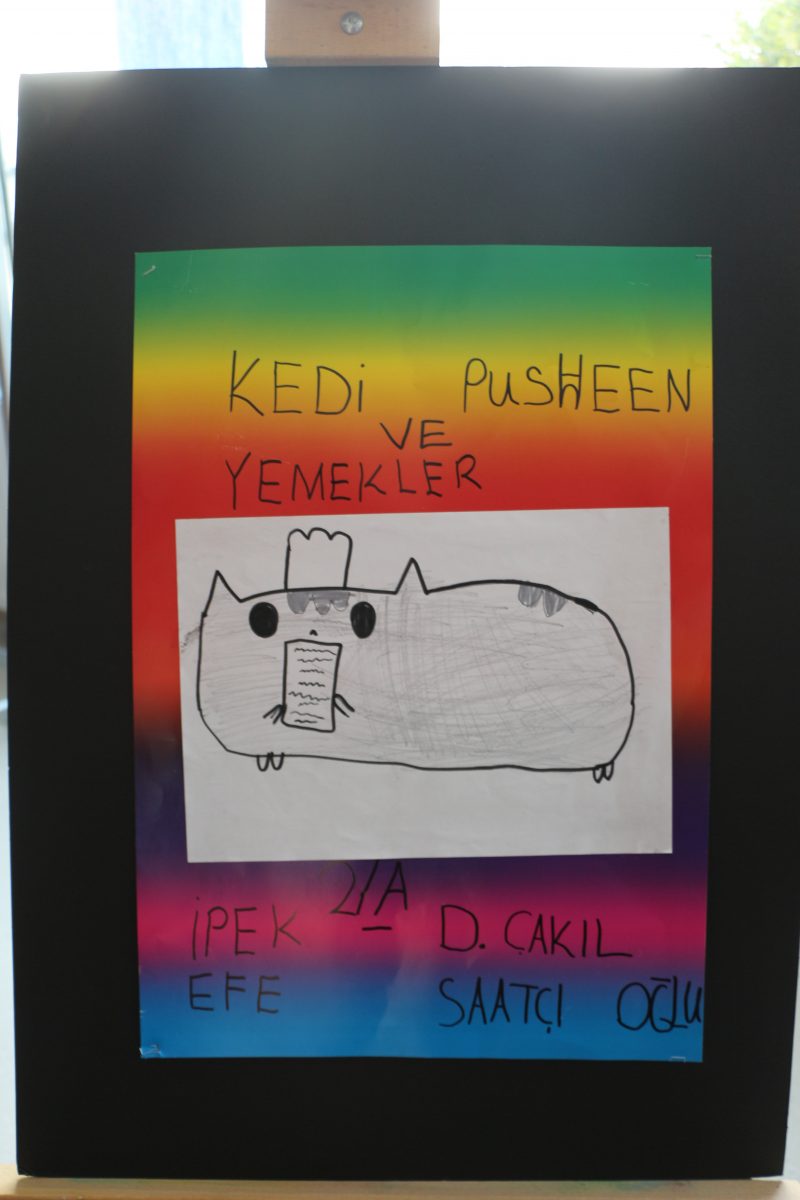 KEDİ PUSHEEN
VE
YEMEKLER
2/A
İPEK D. ÇAKIL
EFE SAATÇI OĞLU